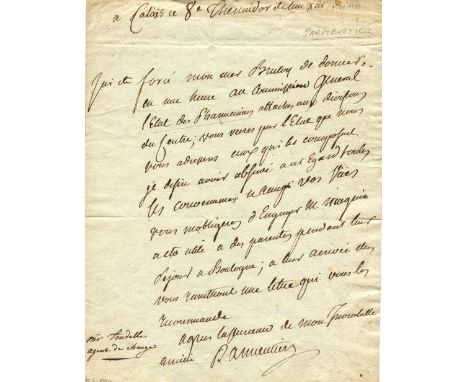 a Calais ce 8e Thermidor
PARMENTIER
J'ai été forcé mon cher de donner
en une heure au Commissaire General
l'Etat des Pharmaciens attachés aux divisions
du Centre; vous verres par l'Etat que nous
vous adressons ceux qui les composent
je desire avoir observé a cet Egard toutes
les convenances rempli vos
vous m'obligeres d'Engager M
a etre utile a des parentes pendant leur
sejour a Boulogne; a leur arrivée elles
vous remettront une lettre qui vous les
recommande
agrees l'assurance de mon inviolable
amitié Parmentier
mr Trudelle
agent de change